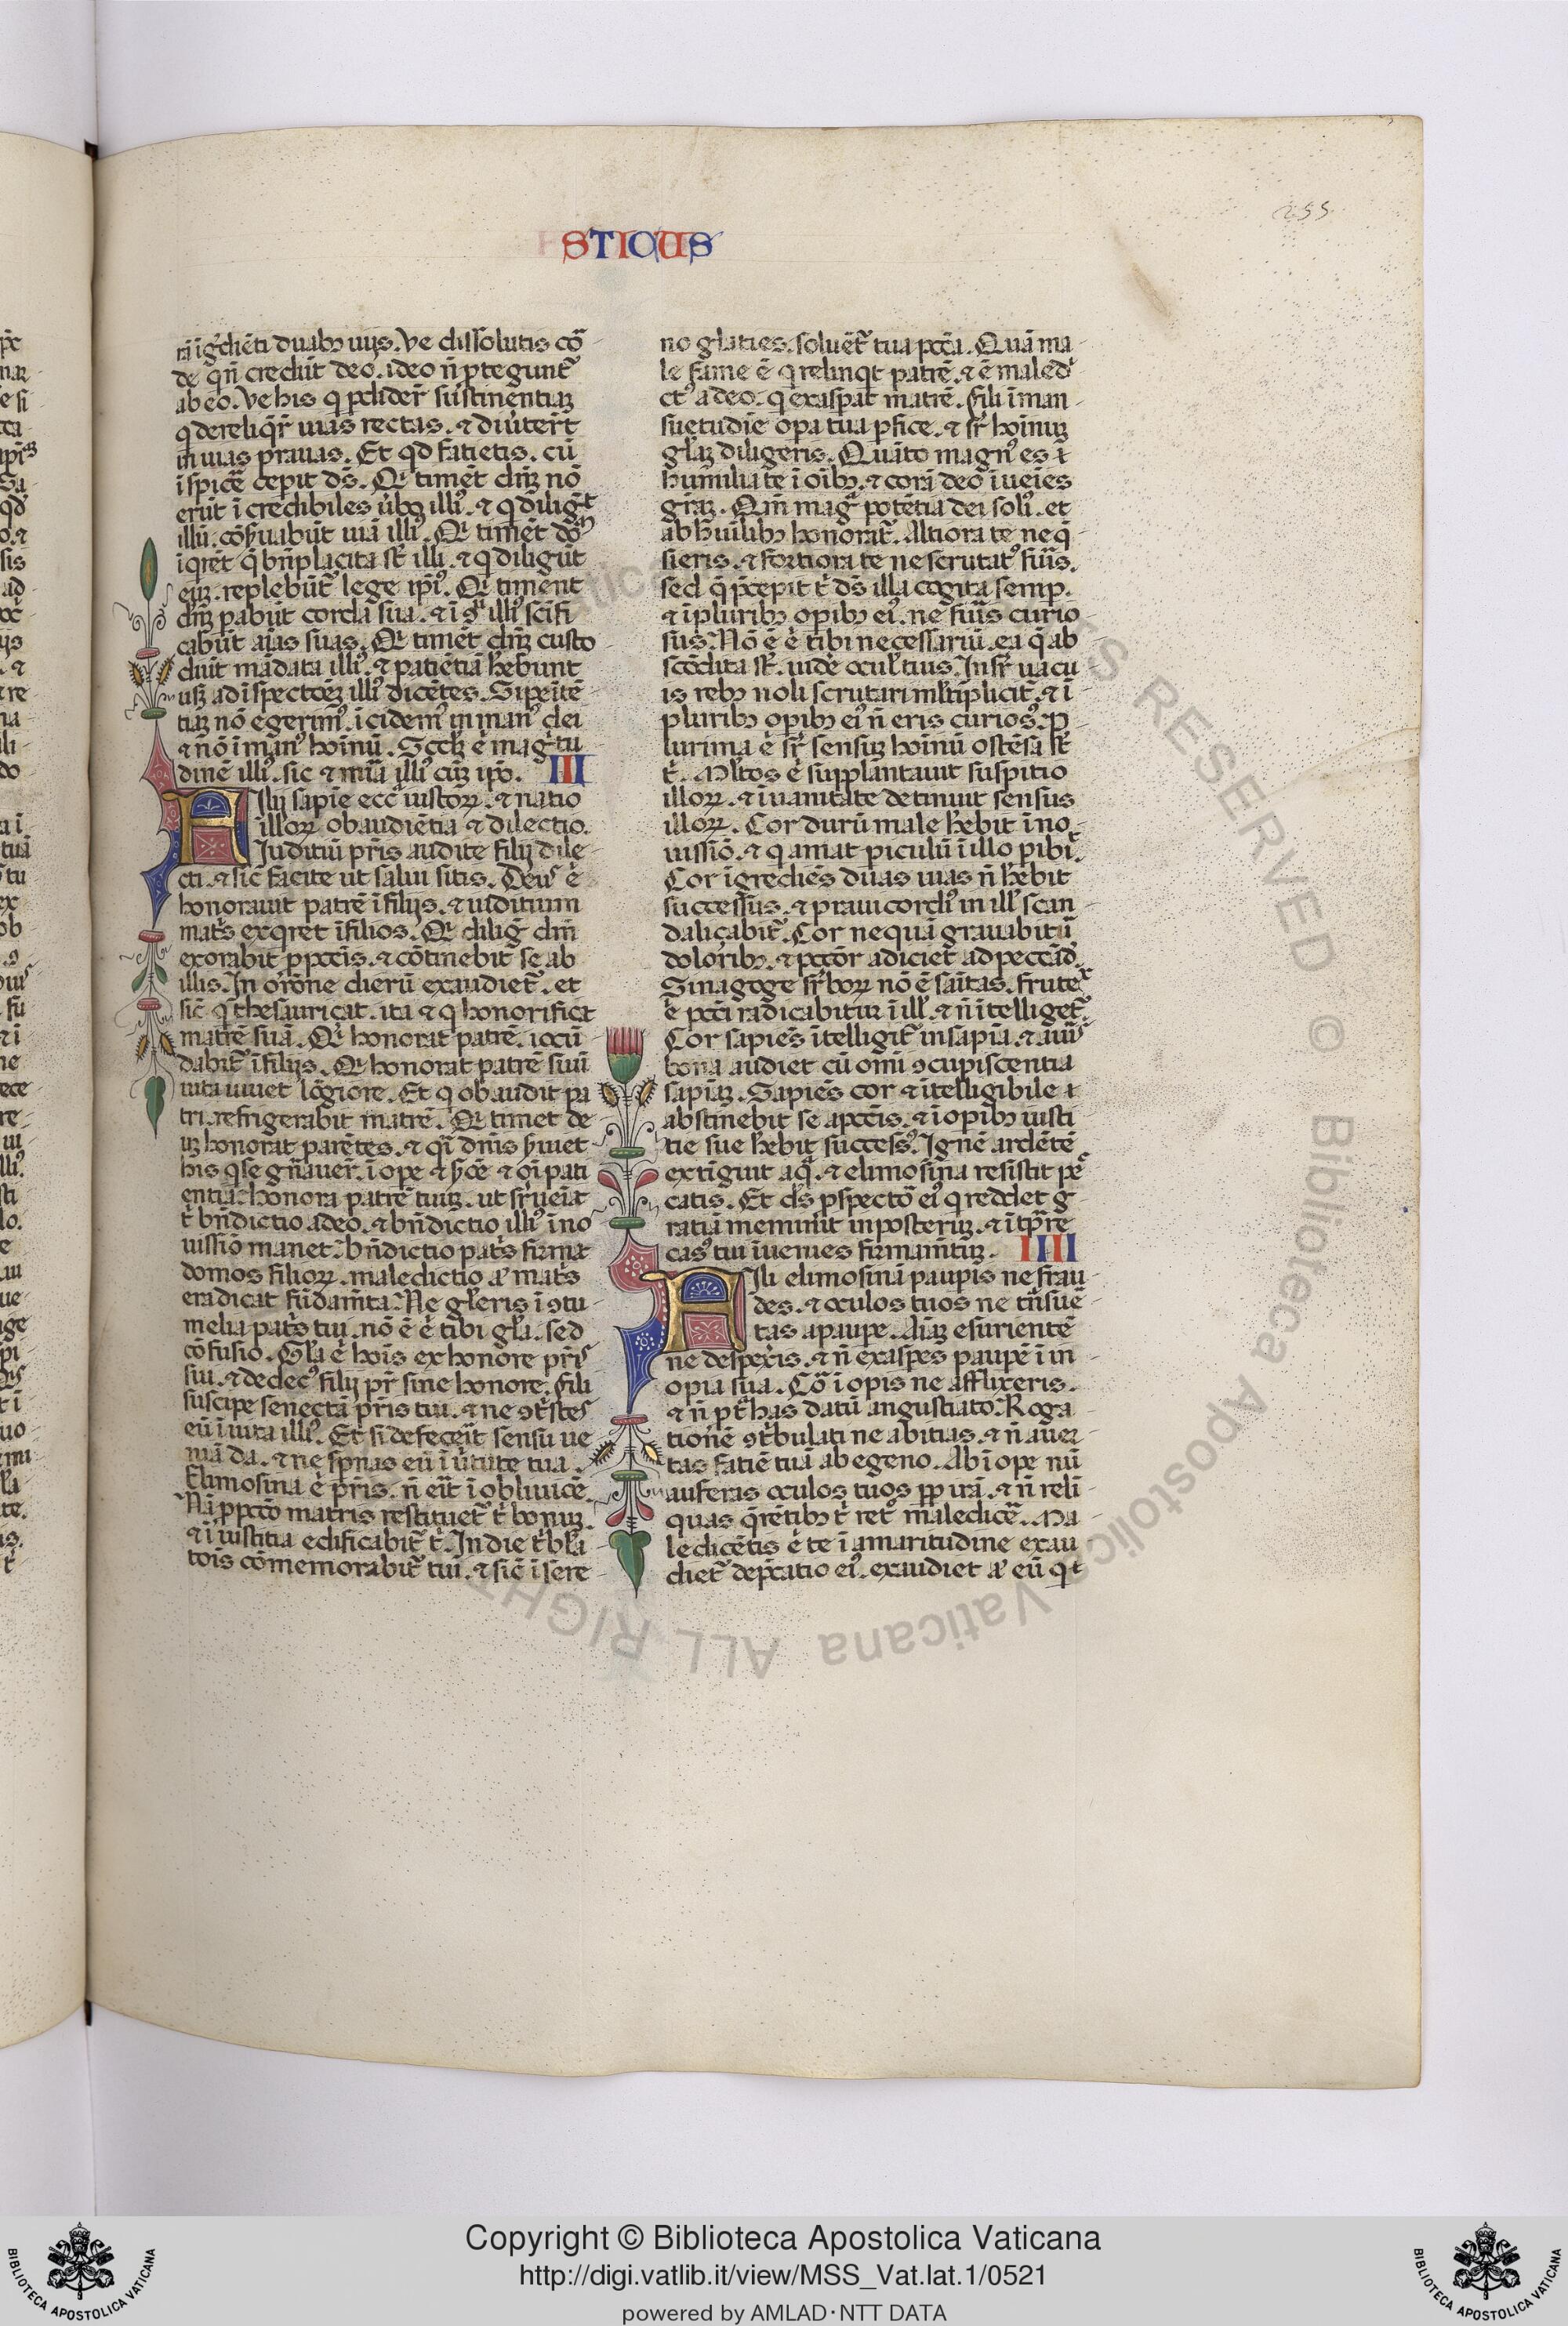 255
STICUS
rī īgđiēti duabꝫ uijs. Ve dissolutis co᷑
de q̄ n̄ credūt deo. ideo n̄ ꝓtegunt᷑
ab eo. Ve his q ꝑdider̄ sustinentiaꝫ
q dereliq̄r̄ uias rectas. ⁊ diuter̄t
in uias prauas. Et qd fatietis. cū
īspicē cepit ds̄. Qi timēt dn̄ꝫ nō
erūt īcredibiles ūbꝫ illiꝰ. ⁊ q diliḡt
illū. cōẜuabūt uiā illiꝰ. Qi timēt do᷑m
īqrēt q̄ bn̄placita st̄ illi. ⁊ q diligūt
euꝫ. replebūt᷑ lege ip̄iꝰ. Qi timent
dn̄ꝫ pabūt corda sua. ⁊ ī ꝯsp̄ illiꝰ scīfi
cabūt aīas suas. Qi timēt dn̄ꝫ custo
diūt mādata illiꝰ. ⁊ patiētiā hēbunt
usꝫ ad īspectōeꝫ illiꝰ dicētes. Si penitē
tiaꝫ nō egerimꝰ. īcidemꝰ in manꝰ dei
⁊ nō ī manꝰ hoīnū. Scdꝫ ē magtu
dinē illiꝰ. sic ⁊ mīa illiꝰ cuꝫ ip̄o. III
Filij sapiē eccē iustoꝝ. ⁊ natio
illoꝝ obaudiētia ⁊ dilectio.
Juditiū pris audite filij dile
cti. ⁊ sic facite ut salui sitis. Deus ē
honorauit patrē ī filijs. ⁊ iuditium
mat̄s exqrēt ī filios. Qi dilig dm̄
exorabit ꝓ pctīs. ⁊ cōtinebit se ab
illis. In orōne dierū exaudiet᷑. et
sic q thesauricat. ita ⁊ q honorificat
matrē suā. Qi honorat patrē. iocū
dabit᷑ ī filijs. Qi honorat patrē suū
uita uiuet lōgiore. Et q obaudit pa
tri. refrigerabit matrē. Qi timet de
uꝫ honorat parētes. ⁊ q̄i dnīs ẜuiet
his q se gn̄auer̄. ī ope ⁊ ẜōe ⁊ oī pati
entia: honora patrē tuuꝫ. ut sr̄ ueīat
t̄ bn̄dictio adeo. ⁊ bn̄dictio illiꝰ ī no
uissiō manet. bn̄dictio pat̄s firmat
domos filioꝝ. maledictio aͭ mat̄s
eradicat fūdam̄ta. Ne gl̄eris ī ꝯtu
melia pat̄s tui. nō ē ē tibi gl̄a. sed
cōfusio. Gl̄a ē hoīs ex honore pr̄is
sui. ⁊ dedecꝰ filij pr̄ sine honore. Fili
suscipe senectā pris tui. ⁊ ne ꝯtr̄stes
eū ī uita illiꝰ. Et si defecerīt sensū ue
niā da. ⁊ ne spnas eū ī ūtute tua.
Elimosina ē pr̄is. n̄ eīt ī obliuiōe.
Nā ꝓ pctō matris restituet᷑ t̄ bonuꝫ.
⁊ ī iustitia edificabit᷑ t̄. In die t̄bl̄a
tōis cōmemorabit᷑ tui. ⁊ sic ī sere
no glaties. soluēt᷑ tua pctā. Quā ma
le fame ē q relinqt patrē. ⁊ ē maled̄i
ctꝰ adeo. q exaspat matrē. Fili ī man
suetudīe opa tua ꝑfice. ⁊ sr̄ hoīnuꝫ
gl̄aꝫ diligeris. Quāto magnꝰ es ⁊
humilia te ī oībꝫ. ⁊ corā deo īueīes
grāꝫ. Qm̄ mag potētia dei soliꝰ. et
ab hūilibꝫ honorat᷑. Altiora te ne q̄
sieris. ⁊ fortiora te ne scrutatꝰ fuīs.
sed q̄ p̄cepit t̄ ds̄ illa cogita semꝑ.
⁊ ī pluribꝫ opibꝫ eiꝰ. ne fuīs curio
sus. Nō ē ē tibi necessariū. ea q̄ ab
scōdita st̄. uidē oculꝰ tuis. In sr̄ uacu
is rebꝫ noli scrutari ml̄tiplicit̄. ⁊ ī
pluribꝫ opibꝫ eiꝰ n̄ eris curiosꝰ. P
lurima ē sr̄ sensuꝫ hoīnū ostēsa st̄
t̄. Ml̄tos ē supplantauit suspitio
illoꝝ. ⁊ ī uanitate detinuit sensus
illoꝝ. Cor durū male hēbit ī no
uissiō. ⁊ q amat piculū ī illo pibit.
Cor īgrediēs duas uias n̄ hēbit
successus. ⁊ praui cordiꝰ in illꝰ scan
dalicabit᷑. Cor nequā grauabitū
doloribꝫ. ⁊ pctōr adiciet ad peccād̄.
Sinagoge sr̄boꝝ nō ē saītas. frutex
ē pcti radicabitur ī illꝰ. ⁊ n̄ ītelliget᷑.
Cor sapiēs ītelligit᷑ in sapiā. ⁊ auīs
bona audiet cū omi ꝯcupiscentia
sapiāꝫ. Sapiēs cor ⁊ ītelligibile ⁊
abstinebit se apctīs. ⁊ ī opibꝫ iusti
tie sue hēbit successꝰ. Ignē ardētē
extīguit aq̄. ⁊ elimosina resistit pec
catis. Et ds̄ ꝓspectō eiꝰ q reddet g
ratiā meminit in posteruꝫ. ⁊ ī tp̄re
casꝰ tui īuenies firmam̄tuꝫ. IIII
Fili elimosinā paupis ne frau
des. ⁊ oculos tuos ne tn̄suē
tas apaupe. Aīaꝫ esurientē
ne despexis. ⁊ n̄ exaspes paupē ī in
opia sua. Co᷑ īopis ne afflixeris.
⁊ n̄ ptr̄has datū angustiato. Roga
tionē ꝯtr̄bulati ne abitias. ⁊ n̄ auer
tas fatiē tuā ab egeno. Ab īope nū
auferas oculos tuos ꝓp irā. ⁊ n̄ reli
quas q̄rētibꝫ t̄ retꝰ maledicē. Ma
ledicētis ē te ī amaritudine exau
diet᷑ dep̄catio eiꝰ. exaudiet aͭ eū qi
Copyright © Biblioteca Apostolica Vaticana
http://digi.vatlib.it/view/MSS_Vat.lat.1/0521
powered by AMLAD·NTT DATA
BIBLIOTECA APOSTOLICA VATICANA
BIBLIOTECA APOSTOLICA VATICANA